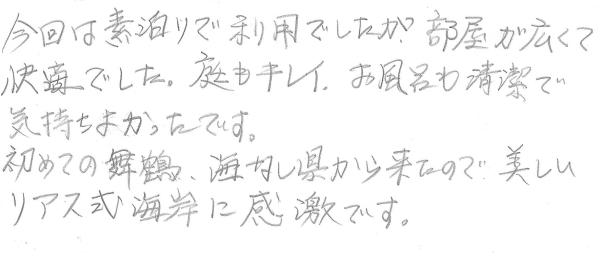 今回は素泊りで利用でしたが、部屋が広くて
快適でした。庭もキレイ、お風呂も清潔で
気持ちよかったです。
初めての舞鶴、海なし県から来たので美しい
リアス式海岸に感激です。